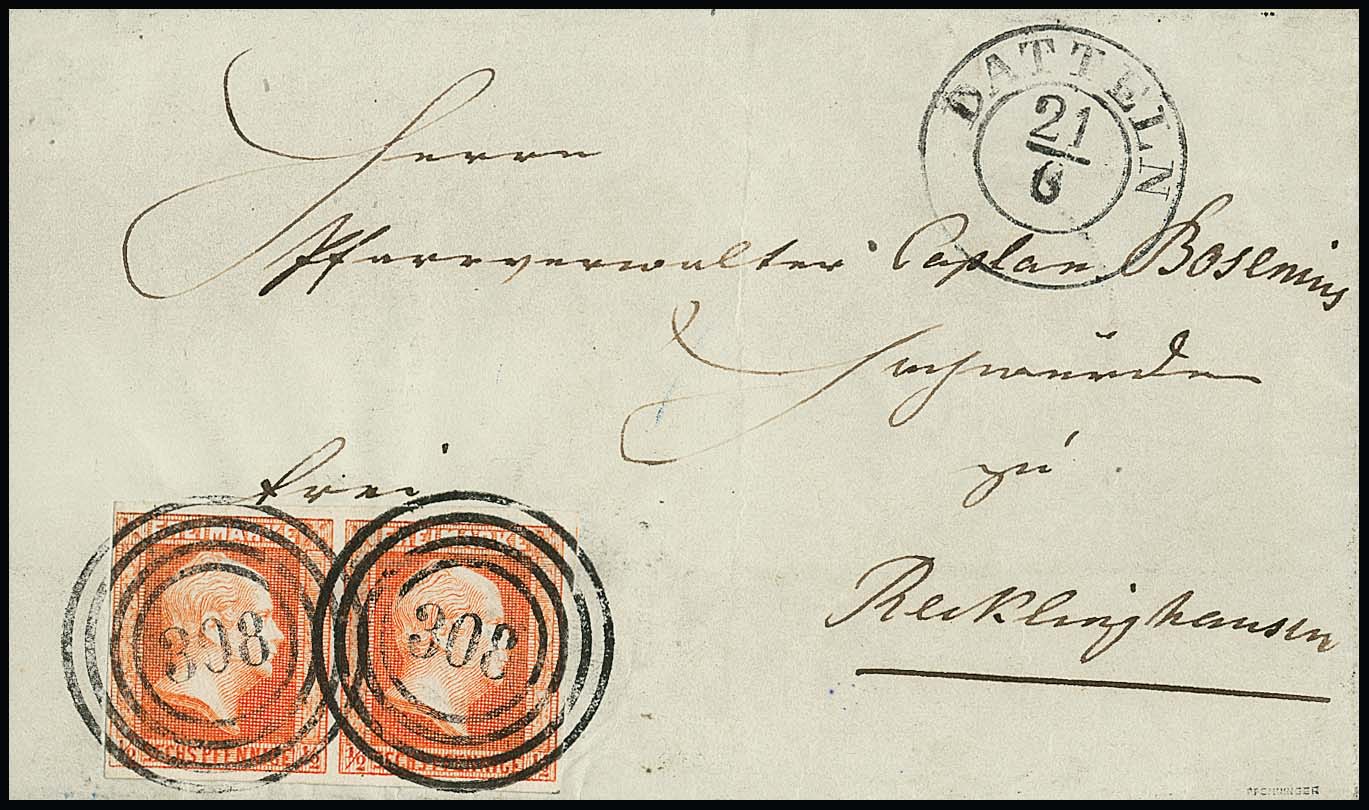 DATTELN
21
6
Herrn
Pfarrverwalter Caplan Bosenius
Hochwürden
zu
frei
Recklinghausen
FREIMARKE FREIMARKE
308 308
½ SECHS PFENNIGE ½ ½ SECHS PFENNIGE ½
PFENNINGER